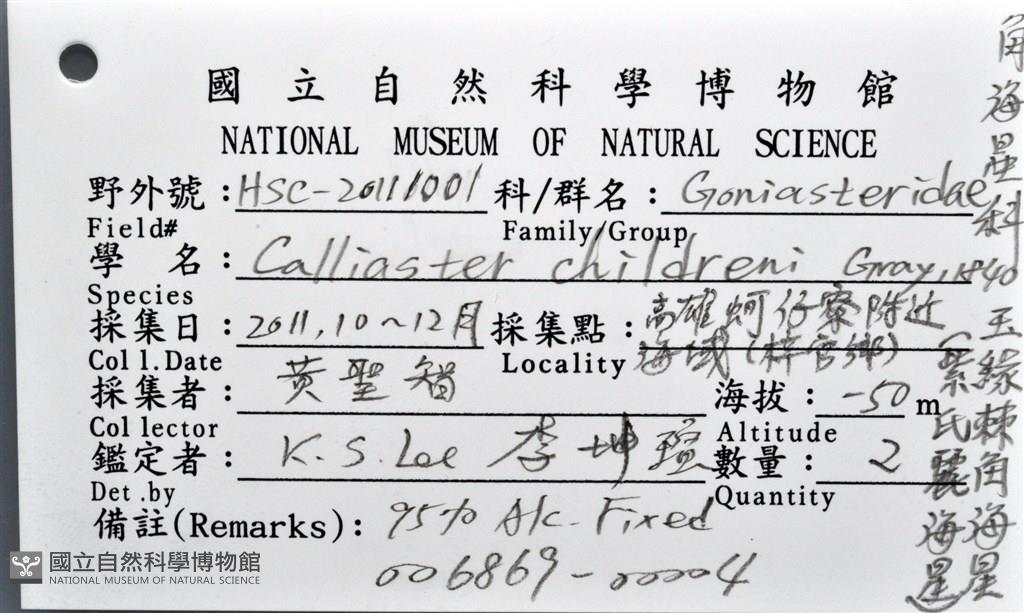 國立自然科學博物館
NATIONAL MUSEUM OF NATURAL SCIENCE
野外號：HSC-20111001 科/群名：Goniasteridae
Field# Family/Group
學 名：Calliaster childreni Gray, 1840
Species
採集日：2011, 10~12月 採集點：高雄蚵仔寮附近
海域（梓官鄉）
Coll.Date Locality
採集者：黃聖智 海拔：-50 m
Collector Altitude
鑑定者：K. S. Lee 李坤瑄 數量：2
Det.by Quantity
備註(Remarks)：95% Alc. Fixed
006869-00004
角海星科 玉緣棘角海星
氏麗海星
國立自然科學博物館
NATIONAL MUSEUM OF NATURAL SCIENCE